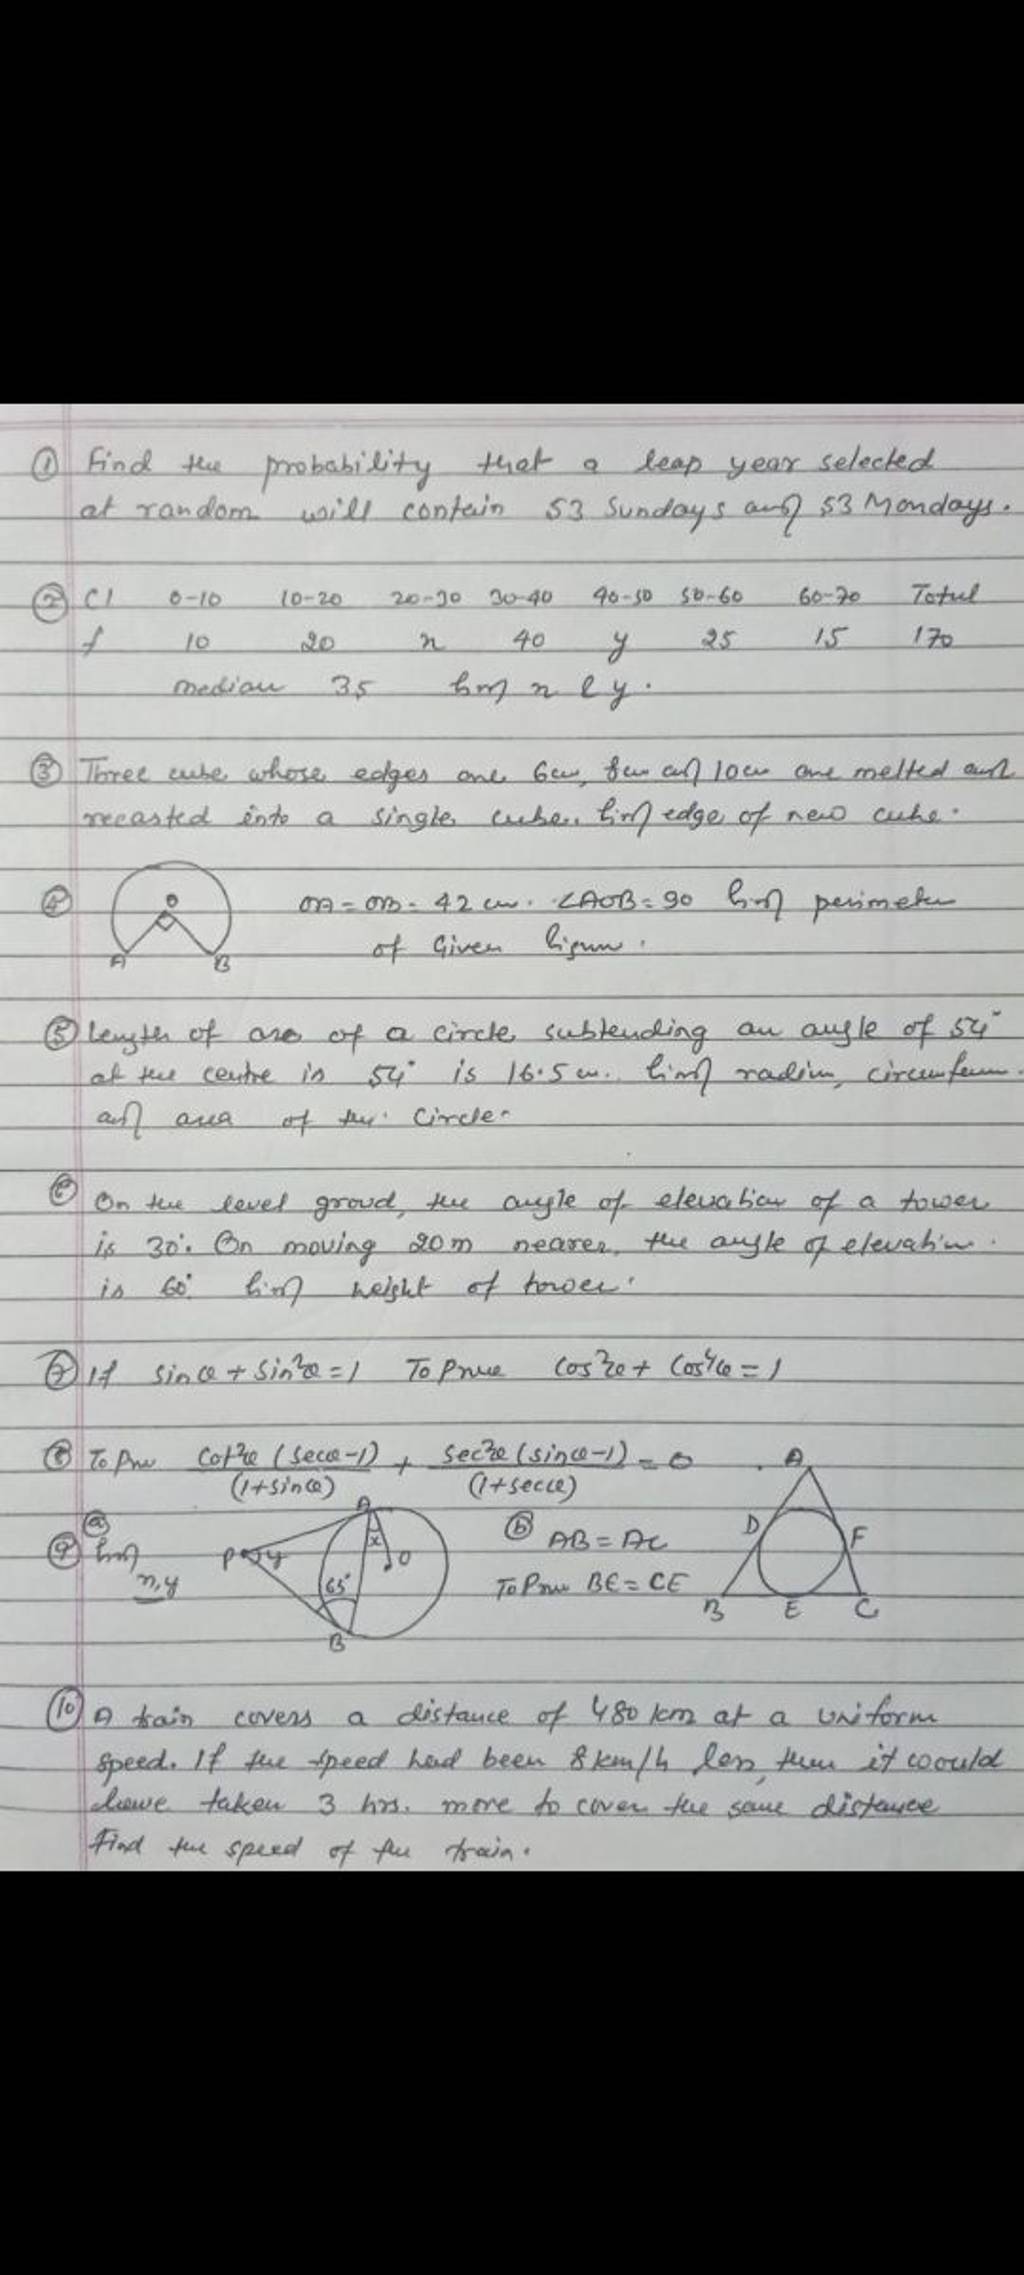 ① Find the probability that a leap year selected
at random will contain 53 Sundays and 53 Mondays.
② CI 0-10 10-20 20-30 30-40 40-50 50-60 60-70 Total
f 10 20 x 40 y 25 15 170
median 35 find x & y.
③ Three cube whose edges are 6cm, 8cm and 10cm are melted and
recasted into a single cube. find edge of new cube.
④ OA = OB = 42 cm. ∠AOB = 90 find perimeter
of Given figure.
O
A B
⑤ Length of arc of a circle subtending an angle of 54°
at the centre is 54° is 16.5 cm. find radius, circumferen.
and area of the circle.
⑥ On the level groud, the angle of elevation of a tower
is 30°. On moving 20m nearer, the angle of elevation
is 60° find height of tower.
⑦ If sinθ + sin²θ = 1 To Prove cos²θ + cos⁴θ = 1
⑧ To Prove cot²θ (secθ-1)/(1+sinθ) + sec²θ (sinθ-1)/(1+secθ) = 0
⑨ ⓐ find
x, y
P y A x O 65° B
ⓑ AB = AC
To Prove BE = CE
A
D F
B E C
⑩ A train covers a distance of 480 km at a uniform
speed. If the speed had been 8 km/h less, then it would
have taken 3 hrs. more to cover the same distance
Find the speed of the train.